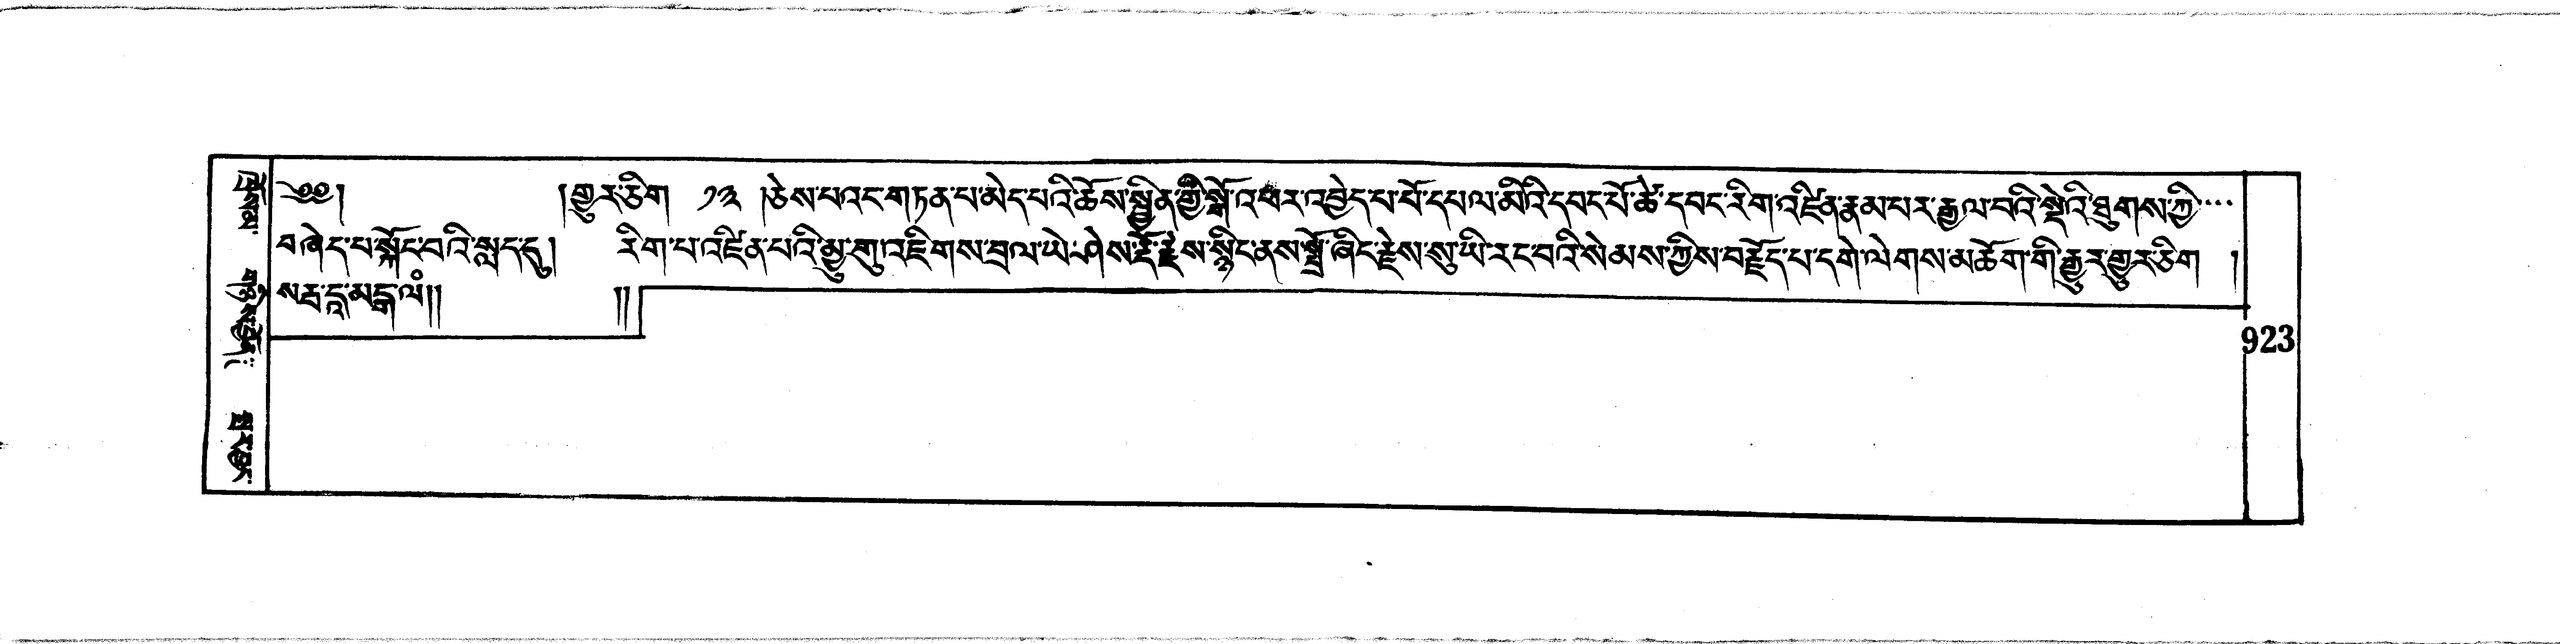 ༄༅། །གྱུར་ཅིག ༡༣ །ཅེས་པའང་གཏན་པ་མེད་པའི་ཆོས་སྦྱིན་གྱི་སྒོ་འཕར་འབྱེད་པ་པོ་དཔལ་མིའི་དབང་པོ་ཚེ་དབང་རིག་འཛིན་རྣམ་པར་རྒྱལ་བའི་སྡེའི་ཐུགས་ཀྱི་...
བཞེད་པ་སྐོང་བའི་སླད་དུ། རིག་པ་འཛིན་པའི་མྱུ་གུ་འཇིགས་བྲལ་ཡེ་ཤེས་རྡོ་རྗེས་སྙིང་ནས་སྤྲོ་ཞིང་རྗེས་སུ་ཡི་རང་བའི་སེམས་ཀྱིས་བརྗོད་པ་དགེ་ལེགས་མཆོག་གི་རྒྱུར་གྱུར་ཅིག །
སརྦ་དཱ་མངྒ་ལཾ།། །།
923